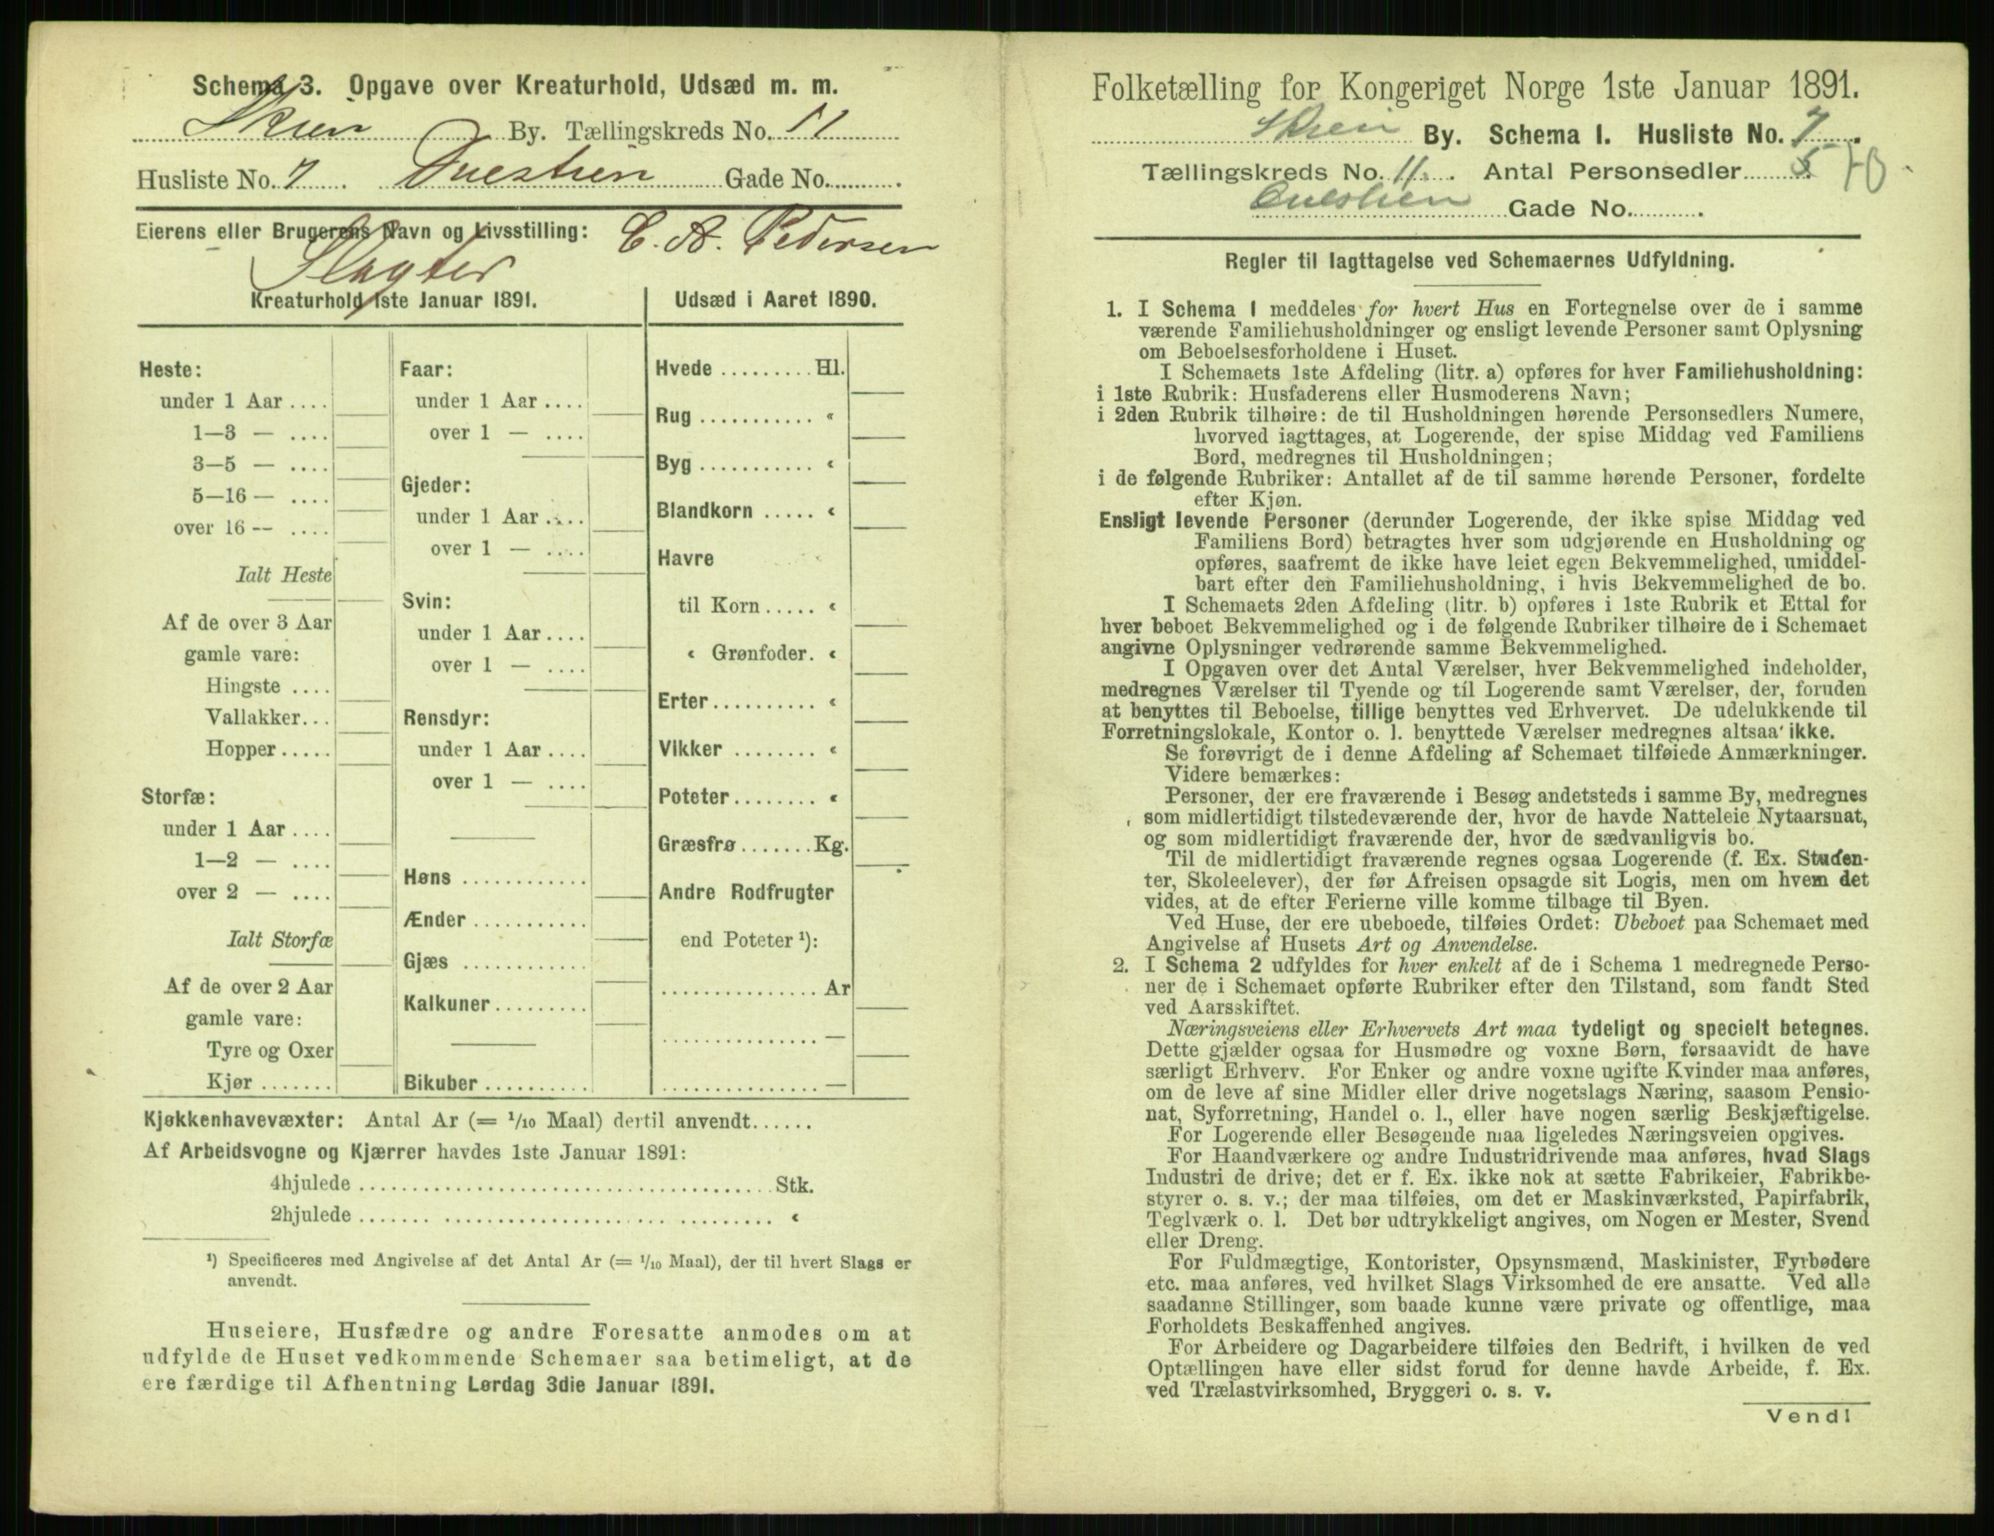 Schema 3. Opgave over Kreaturhold, Udsæd m. m.
Skien By. Tællingskreds No. 11
Husliste No. 7 Gade No.
Eierens eller Brugerens Navn og Livsstilling: C. A. Pedersen
Slagter
Kreaturhold 1ste Januar 1891.
Heste:
under 1 Aar ....
1—3 — ....
3—5 — ....
5—16 — ....
over 16 — ....
Ialt Heste
Af de over 3 Aar
gamle vare:
Hingste ....
Vallakker...
Hopper.....
Storfæ:
under 1 Aar ....
1—2 — ....
over 2 — ....
Ialt Storfæ
Af de over 2 Aar
gamle vare:
Tyre og Oxer
Kjør.......
Faar:
under 1 Aar ....
over 1 — ....
Gjeder:
under 1 Aar ....
over 1 — ....
Svin:
under 1 Aar ....
over 1 — ....
Rensdyr:
under 1 Aar ....
over 1 — ....
Høns ............
Ænder ...........
Gjæs ............
Kalkuner.........
Bikuber..........
Udsæd i Aaret 1890.
Hvede .........Hl.
Rug ........... «
Byg ........... «
Blandkorn ..... «
Havre
til Korn..... «
« Grønfoder. «
Erter.......... «
Vikker ........ «
Poteter........ «
Græsfrø.......Kg.
Andre Rodfrugter
end Poteter ¹):
...............Ar
...............—
...............—
Kjøkkenhavevæxter: Antal Ar (= 1/10 Maal) dertil anvendt......
Af Arbeidsvogne og Kjærrer havdes 1ste Januar 1891:
4hjulede ........................................Stk.
2hjulede ........................................ «
¹) Specificeres med Angivelse af det Antal Ar (= 1/10 Maal), der til hvert Slags er
anvendt.
Huseiere, Husfædre og andre Foresatte anmodes om at
udfylde de Huset vedkommende Schemaer saa betimeligt, at de
ere færdige til Afhentning Lørdag 3die Januar 1891.
Folketælling for Kongeriget Norge 1ste Januar 1891.
Skien By. Schema I. Husliste No. 7.
Tællingskreds No. 11. Antal Personsedler 5 70
Gade No.
Regler til Iagttagelse ved Schemaernes Udfyldning.
1. I Schema I meddeles for hvert Hus en Fortegnelse over de i samme
værende Familiehusholdninger og ensligt levende Personer samt Oplysning
om Beboelsesforholdene i Huset.
I Schemaets 1ste Afdeling (litr. a) opføres for hver Familiehusholdning:
i 1ste Rubrik: Husfaderens eller Husmoderens Navn;
i 2den Rubrik tilhøire: de til Husholdningen hørende Personsedlers Numere,
hvorved iagttages, at Logerende, der spise Middag ved Familiens
Bord, medregnes til Husholdningen;
i de følgende Rubriker: Antallet af de til samme hørende Personer, fordelte
efter Kjøn.
Ensligt levende Personer (derunder Logerende, der ikke spise Middag ved
Familiens Bord) betragtes hver som udgjørende en Husholdning og
opføres, saafremt de ikke have leiet egen Bekvemmelighed, umiddel-
bart efter den Familiehusholdning, i hvis Bekvemmelighed de bo.
I Schemaets 2den Afdeling (litr. b) opføres i 1ste Rubrik et Ettal for
hver beboet Bekvemmelighed og i de følgende Rubriker tilhøire de i Schemaet
angivne Oplysninger vedrørende samme Bekvemmelighed.
I Opgaven over det Antal Værelser, hver Bekvemmelighed indeholder,
medregnes Værelser til Tyende og til Logerende samt Værelser, der, foruden
at benyttes til Beboelse, tillige benyttes ved Erhvervet. De udelukkende til
Forretningslokale, Kontor o. l. benyttede Værelser medregnes altsaa ikke.
Se forøvrigt de i denne Afdeling af Schemaet tilføiede Anmærkninger.
Videre bemærkes:
Personer, der ere fraværende i Besøg andetsteds i samme By, medregnes
som midlertidigt tilstedeværende der, hvor de havde Natteleie Nytaarsnat,
og som midlertidigt fraværende der, hvor de sædvanligvis bo.
Til de midlertidigt fraværende regnes ogsaa Logerende (f. Ex. Studen-
ter, Skoleelever), der før Afreisen opsagde sit Logis, men om hvem det
vides, at de efter Ferierne ville komme tilbage til Byen.
Ved Huse, der ere ubeboede, tilføies Ordet: Ubeboet paa Schemaet med
Angivelse af Husets Art og Anvendelse.
2. I Schema 2 udfyldes for hver enkelt af de i Schema 1 medregnede Perso-
ner de i Schemaet opførte Rubriker efter den Tilstand, som fandt Sted
ved Aarsskiftet.
Næringsveiens eller Erhvervets Art maa tydeligt og specielt betegnes.
Dette gjælder ogsaa for Husmødre og voxne Børn, forsaavidt de have
særligt Erhverv. For Enker og andre voxne ugifte Kvinder maa anføres,
om de leve af sine Midler eller drive nogetslags Næring, saasom Pensio-
nat, Syforretning, Handel o. l., eller have nogen særlig Beskjæftigelse.
For Logerende eller Besøgende maa ligeledes Næringsveien opgives.
For Haandværkere og andre Industridrivende maa anføres, hvad Slags
Industri de drive; det er f. Ex. ikke nok at sætte Fabrikeier, Fabrikbe-
styrer o. s. v.; der maa tilføies, om det er Maskinværksted, Papirfabrik,
Teglværk o. l. Det bør udtrykkeligt angives, om Nogen er Mester, Svend
eller Dreng.
For Fuldmægtige, Kontorister, Opsynsmænd, Maskinister, Fyrbødere
etc. maa anføres, ved hvilket Slags Virksomhed de ere ansatte. Ved alle
saadanne Stillinger, som baade kunne være private og offentlige, maa
Forholdets Beskaffenhed angives.
For Arbeidere og Dagarbeidere tilføies den Bedrift, i hvilken de ved
Optællingen have eller sidst forud for denne havde Arbeide, f. Ex.
ved Trælastvirksomhed, Bryggeri o. s. v.
Vend!